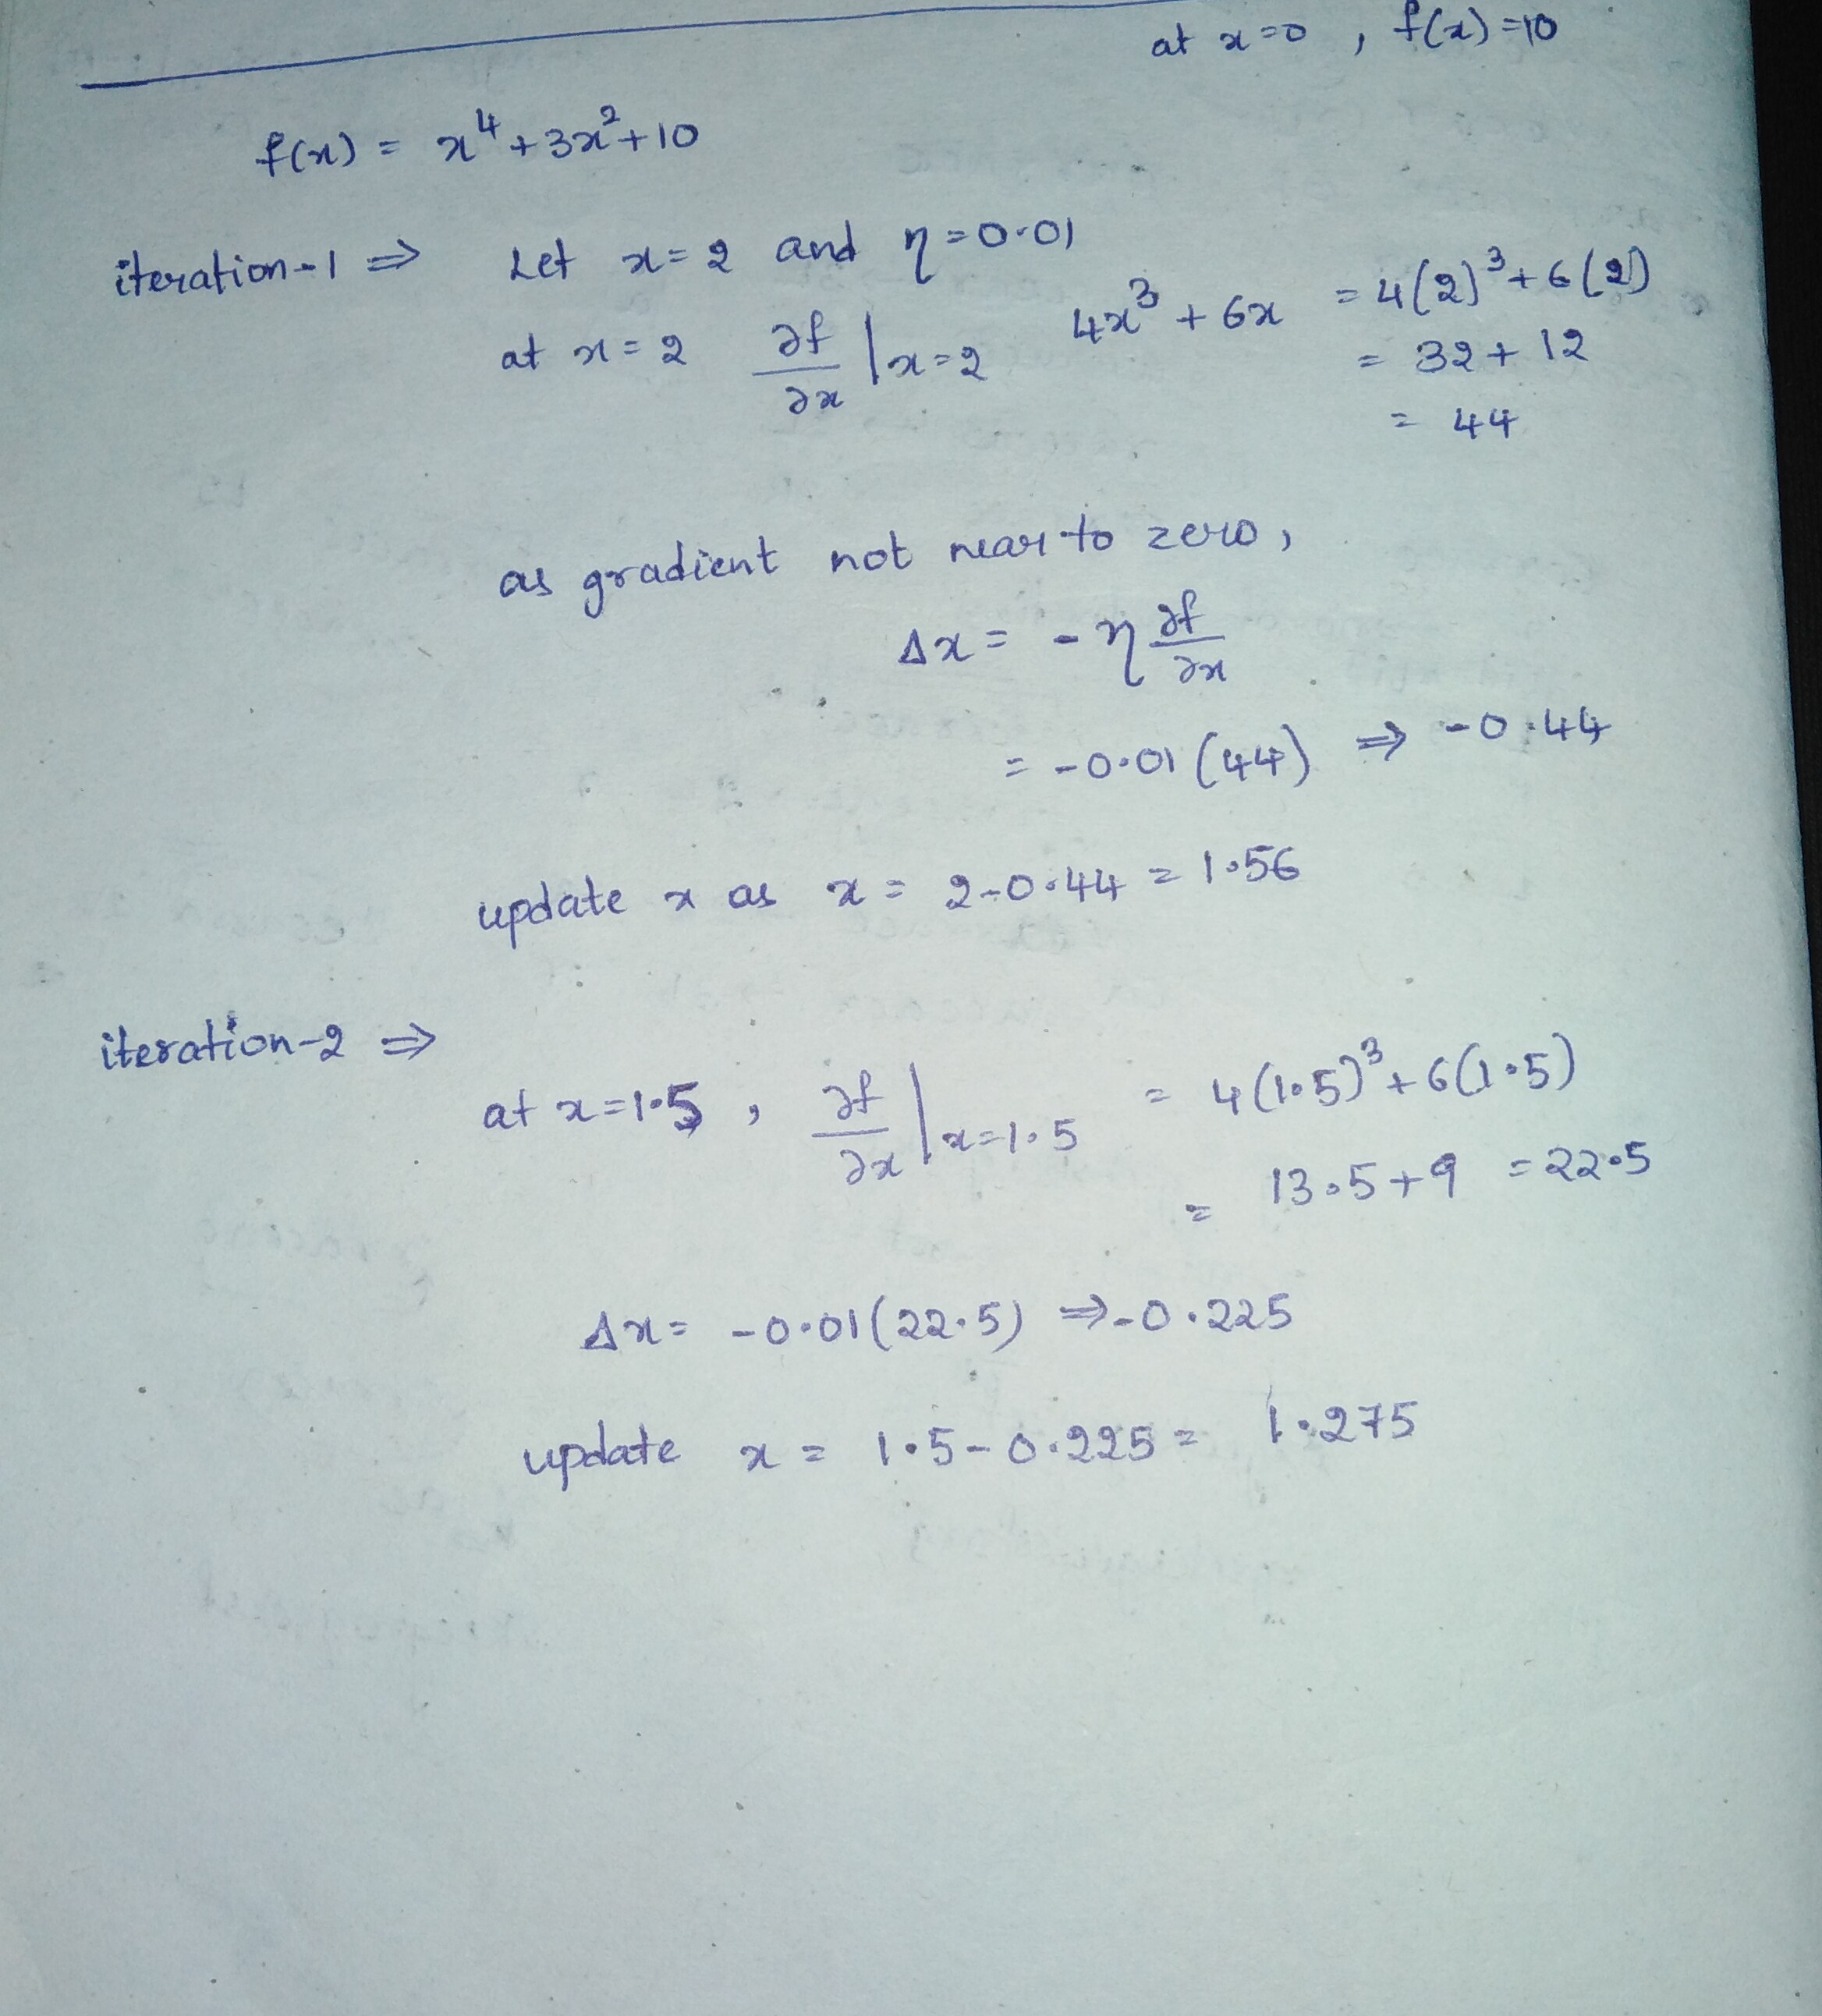 at x=0 , f(x)=10
f(x) = x⁴+3x²+10
iteration-1 ⇒ Let x=2 and η=0.01
at x=2 ∂f/∂x |x=2 4x³+6x = 4(2)³+6(2)
= 32+12
= 44
as gradient not near to zero,
Δx = -η ∂f/∂x
= -0.01(44) ⇒ -0.44
update x as x = 2-0.44 = 1.56
iteration-2 ⇒
at x=1.5 , ∂f/∂x |x=1.5 = 4(1.5)³+6(1.5)
= 13.5+9 = 22.5
Δx = -0.01(22.5) ⇒ -0.225
update x = 1.5-0.225 = 1.275